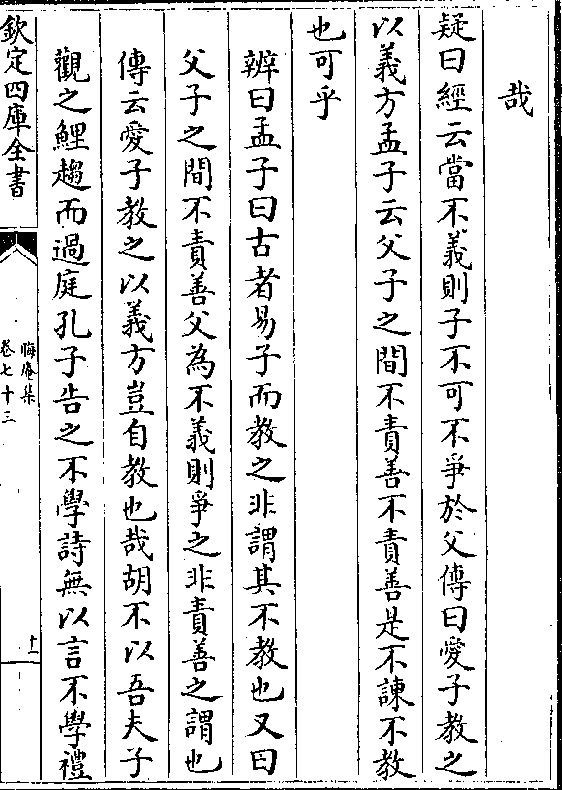 哉
疑曰經云當不義則子不可不爭於父傳曰愛子教之
以義方孟子云父子之間不責善不責善是不諫不教
也可乎
辨曰孟子曰古者易子而教之非謂其不教也又曰
父子之間不責善父為不義則爭之非責善之謂也
傳云愛子教之以義方豈自教也哉胡不以吾夫子
觀之鯉趨而過庭孔子告之不學詩無以言不學禮
欽定四庫全書
晦庵集
卷七十三
十一